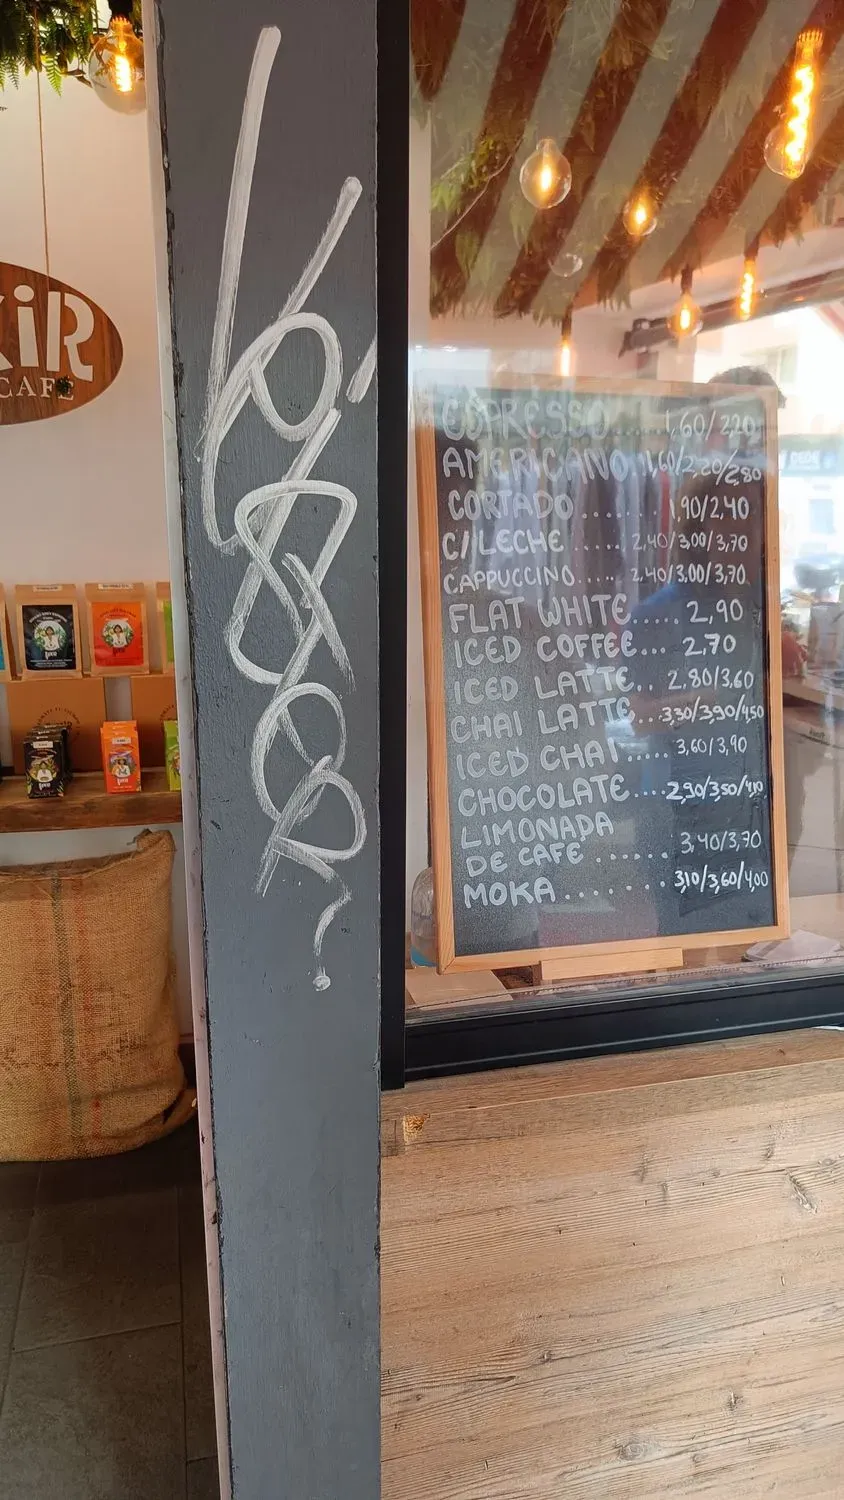 XiR
CAFE
ESPRESSO........1,60/2,20
AMERICANO.1,60/2.20/2,80
CORTADO........1,90/2,40
C/LECHE......2,40/3,00/3,70
CAPPUCCINO.....2,40/3,00/3,70
FLAT WHITE.....2,90
ICED COFFEE...2.70
ICED LATTE..2.80/3,60
CHAI LATTE...3,30/3,90/4,50
ICED CHAI.....3,60/3,90
CHOCOLATE....2,90/3,50/4,10
LIMONADA
DE CAFE......3,40/3,70
MOKA........3,10/3,60/4,00